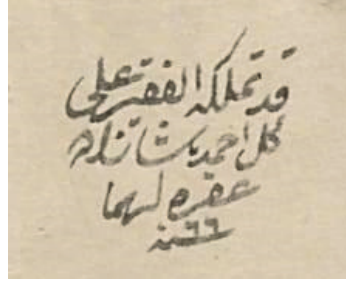 قد تملكه الفقير على
كل احمد پاشا زاده
غفر لهما
سنة ٦٦